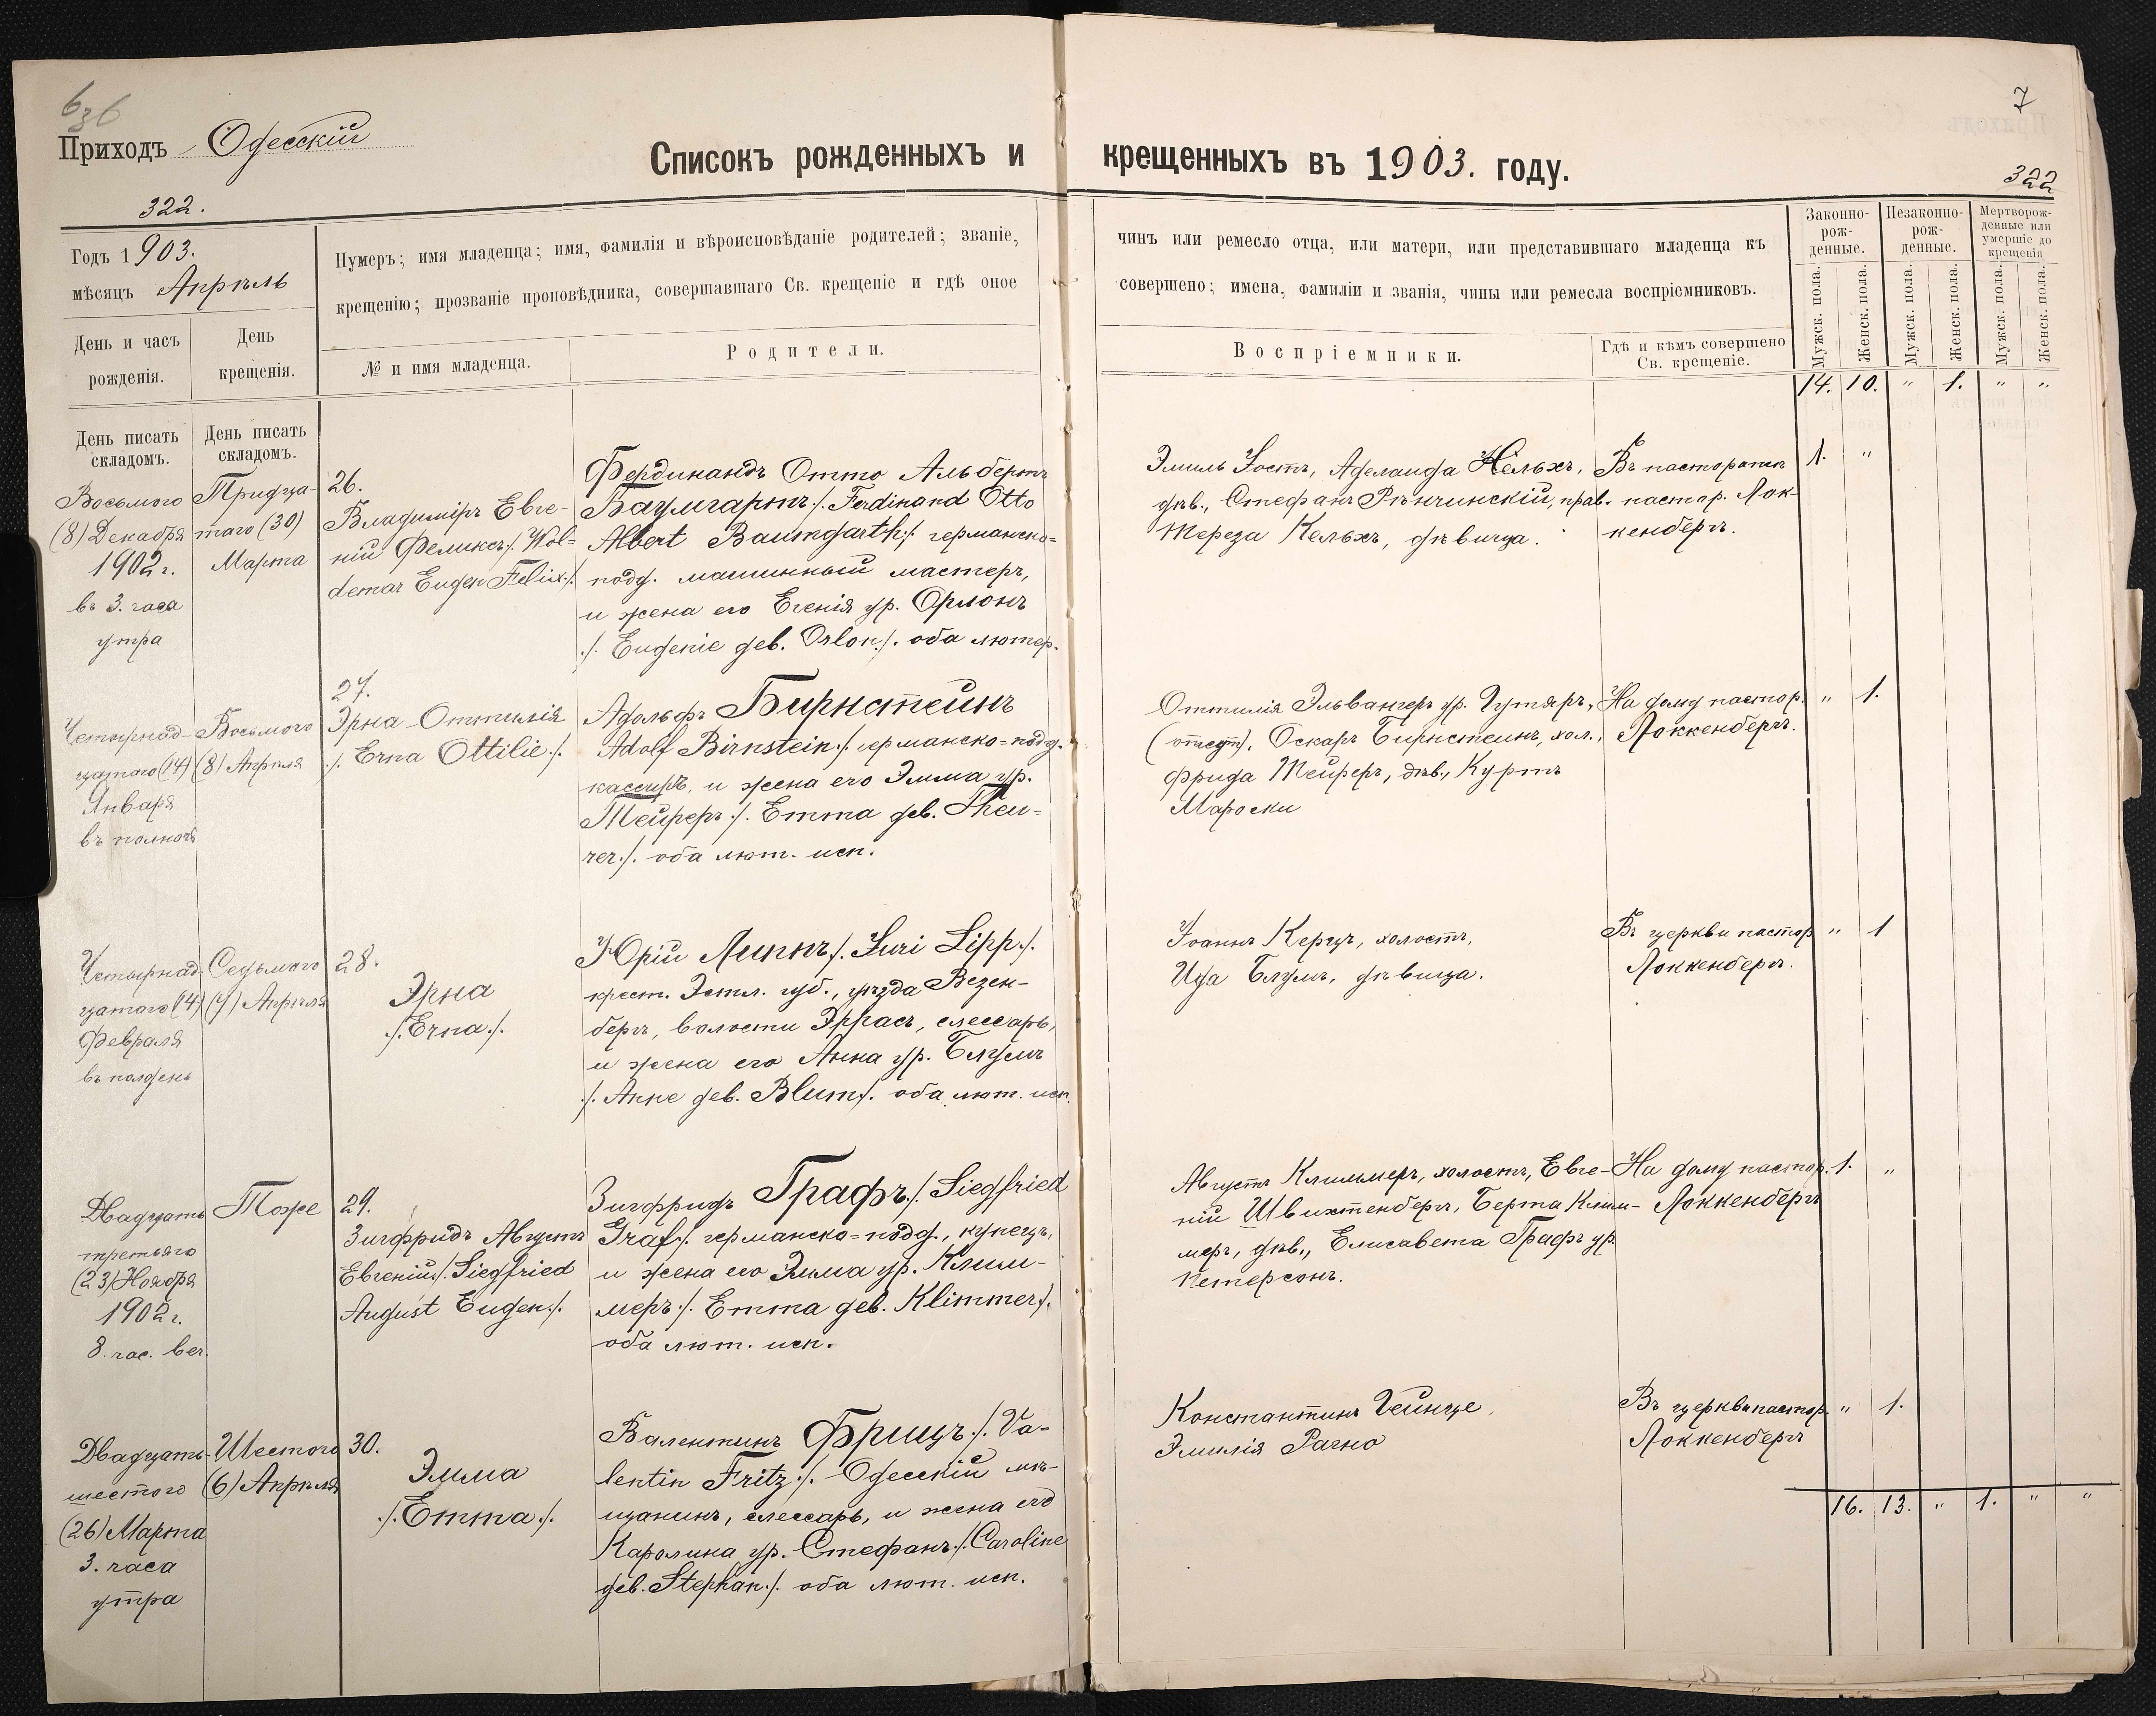 Приходъ Одесскій
7
Списокъ рожденныхъ и крещенныхъ въ 1903. году.
322.
322
Годъ 1903.
мѣсяцъ Апрѣль
День и часъ рожденія.
День крещенія.
Нумеръ; имя младенца; имя, фамилія и вѣроисповѣданіе родителей; званіе, чинъ или ремесло отца, или матери, или представившаго младенца къ
крещенію; прозваніе проповѣдника, совершавшаго Св. крещеніе и гдѣ оное совершено; имена, фамиліи и званія, чины или ремесла воспріемниковъ.
№ и имя младенца.
Родители.
Воспріемники.
Гдѣ и кѣмъ совершено
Св. крещеніе.
Законно-
рож-
денные.
Незаконно-
рож-
денные.
Мертворож-
денные или
умершіе до
крещенія
Мужск. пола.
Женск. пола.
Мужск. пола.
Женск. пола.
Мужск. пола.
Женск. пола.
14. 10. " 1. " "
День писать
складомъ.
День писать
складомъ.
Восьмого
(8) Декабря
1902 г.
въ 3. часа
утра
Тридца-
таго (30)
Марта
26.
Владиміръ Евге-
ній Феликсъ ./. Wol-
demar Eugen Felix ./.
Фердинандъ Отто Альбертъ
Баумгартъ ./. Ferdinand Otto
Albert Baumgarth ./. германско-
подд. машинный мастеръ,
и жена его Евгенія ур. Орлонъ
./. Eugenie geb. Orlon ./. оба лютер.
Эмиль Іостъ, Аделаида Кельхъ,
дѣв., Стефанъ Рѣнчинскій, прав.
Тереза Кельхъ, дѣвица.
Въ пасторатѣ
пастор. Лок-
кенбергъ.
1. "
Четырнад-
цатаго (14)
Января
въ полночь
Восьмого
(8) Апрѣля
27.
Эрна Оттилія
./. Erna Ottilie ./.
Адольфъ Бирнстейнъ
Adolf Birnstein ./. германско-подд.
кассиръ, и жена его Эмма ур.
Тейреръ ./. Emma geb. Theu-
rer ./. оба лют. исп.
Оттилія Эльвангеръ ур. Гутяръ,
(отсут), Оскаръ Бирнстеинъ, хол.,
Фрида Тейреръ, дѣв., Куртъ
Мароски
На дому пастор.
Локкенбергъ.
" 1.
Четырнад-
цатаго (14)
Февраля
въ полдень
Седьмого
(7) Апрѣля
28.
Эрна
./. Erna ./.
Юрій Липпъ ./. Juri Lipp ./.
крест. Эстл. губ., уѣзда Везен-
бергъ, волости Эррасъ, слесарь,
и жена его Анна ур. Блумъ
./. Anne geb. Blum ./. оба лют. исп.
Іоаннъ Керцъ, холостъ,
Ида Блумъ, дѣвица.
Въ церкви пастор
Локкенбергъ.
" 1
Двадцать
третьяго
(23) Ноября
1902 г.
8. час. веч.
Тоже
29.
Зигфридъ Августъ
Евгеній ./. Siegfried
August Eugen ./.
Зигфридъ Графъ ./. Siegfried
Graf ./. германско-подд., купецъ,
и жена его Эмма ур. Клим-
меръ ./. Emma geb. Klimmer ./.
оба лют. исп.
Августъ Климмеръ, холостъ, Евге-
ній Швихтенбергъ, Берта Клим-
меръ, дѣв., Елисавета Графъ ур.
Петерсонъ.
На дому пастор.
Локкенбергъ
1. "
Двадцать-
шестого
(26) Марта
3. часа
утра
Шестого
(6) Апрѣля
30.
Эмма
./. Emma ./.
Валентинъ Фрицъ ./. Va-
lentin Fritz ./. Одесскій мѣ-
щанинъ, слесарь, и жена его
Каролина ур. Стефанъ ./. Caroline
geb. Stephan ./. оба лют. исп.
Константинъ Гейнце,
Эмилія Рачно
Въ церкви пастор.
Локкенбергъ
" 1.
16. 13. " 1. " "